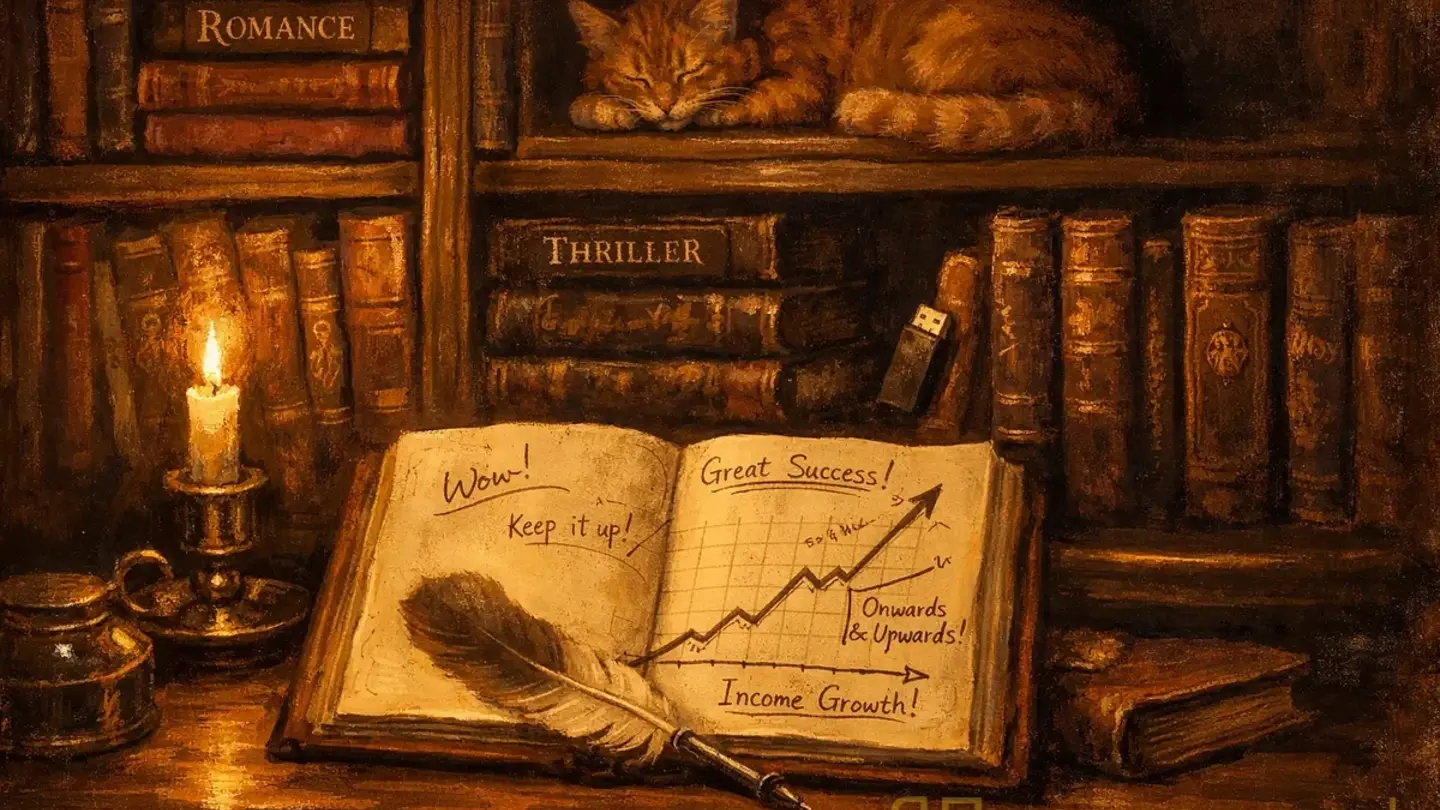 ROMANCE
THRILLER
Wow!
Keep it up!
Great Success!
Onwards
& Upwards!
Income Growth!